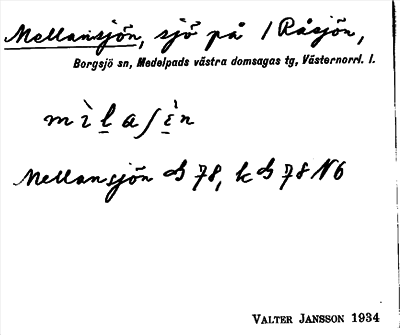 Mellansjön, sjö på / Råsjön,
Borgsjö sn, Medelpads västra domsagas tg, Västernorrl. l.
Mellansjön 78, k 78 N6
VALTER JANSSON 1934